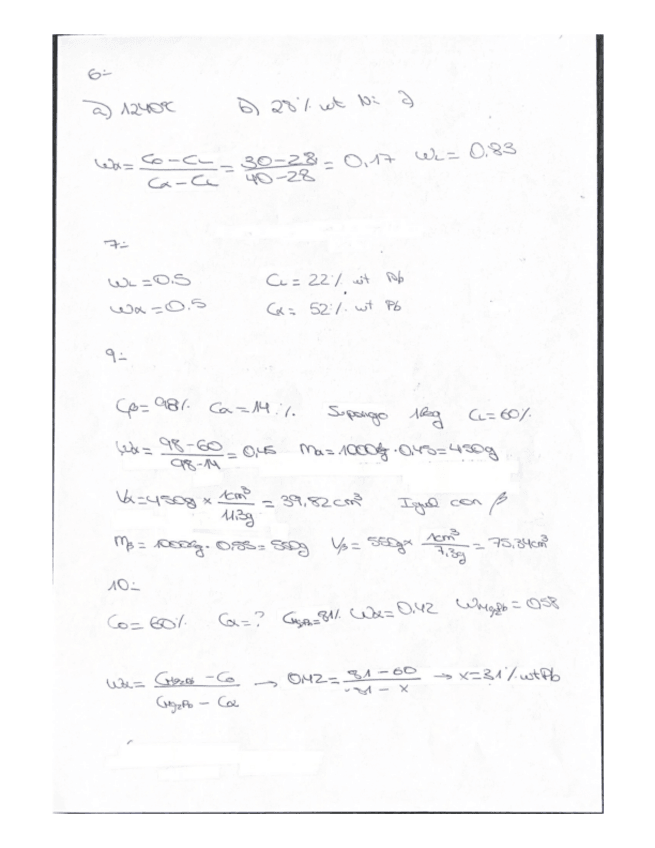 6:-
a) 1240ºC b) 28% wt Ni c)
Wα = (Co - CL)/(Cα - CL) = (30-28)/(40-28) = 0,17 WL = 0.83
7:-
WL = 0.5 CL = 22% wt Pb
Wα = 0.5 Cα = 52% wt Pb
9:-
Cβ = 98% Cα = 14% Supongo 1kg CL = 60%
Wα = (98-60)/(98-14) = 0,45 Mα = 1000g · 0,45 = 450g
Vα = 450g × 1cm³/11.3g = 39,82 cm³ Igual con β
Mβ = 1000g · 0.55 = 550g Vβ = 550g × 1cm³/7,3g = 75.34cm³
10:-
Co = 60% Cα = ? CMg₂Pb = 81% Wα = 0.42 WMg₂Pb = 0.58
Wα = (CMg₂Pb - Co)/(CMg₂Pb - Cα) → 0.42 = (81-60)/(81-x) → x = 31% wt Pb